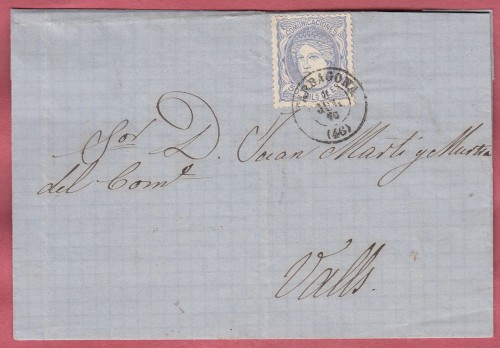 COMUNICACIONES
TARRAGONA
(46)
Sor D. Juan Martí y
del Comº
Valls.